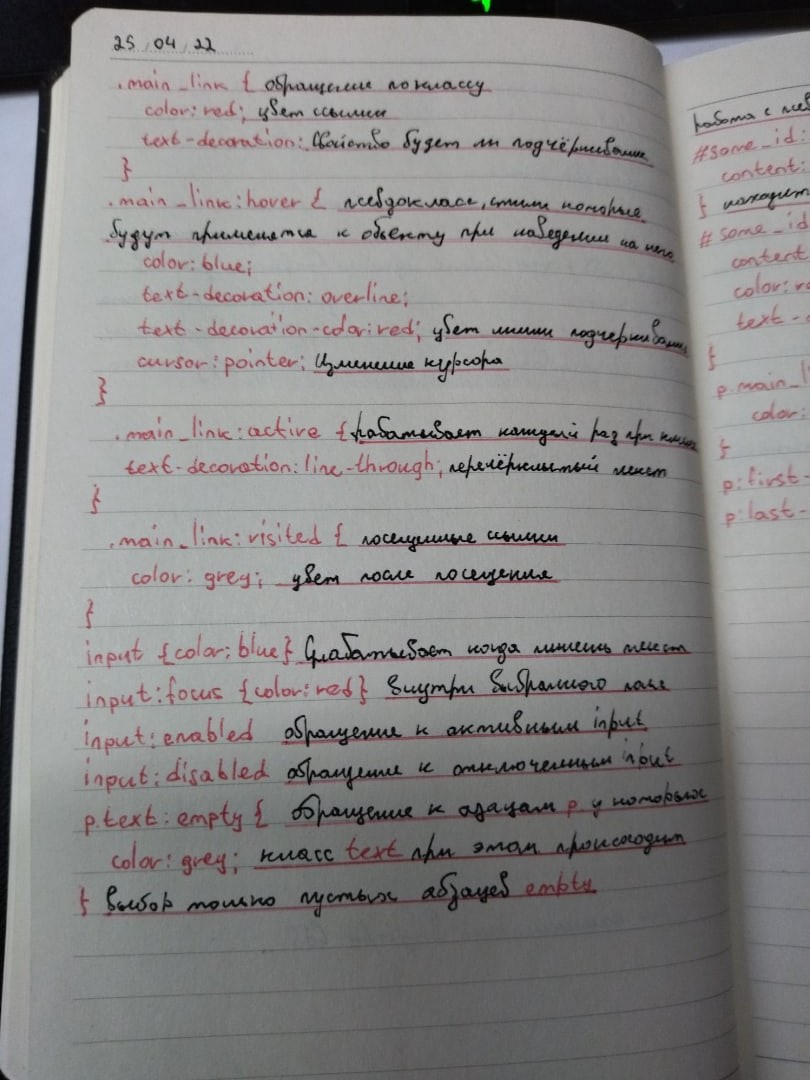 25.04.22
.main_link { обращение по классу
color: red; цвет ссылки
text-decoration: Свойство будет ли подчёркивание
}
.main_link:hover { псевдокласс, стили которые
будут применятся к объекту при наведении на него
color: blue;
text-decoration: overline;
text-decoration-color: red; цвет линии подчеркивания
cursor: pointer; Изменение курсора
}
.main_link:active { рабатывает каждый раз при клике
text-decoration: line-through; перечёркнытый текст
}
.main_link:visited { посещенные ссылки
color: grey; цвет после посещения
}
input {color: blue} Срабатывает когда пишешь текст
input:focus {color: red} внутри выбранного поле
input:enabled обращение к активным input
input:disabled обращение к отключенным input
p.text:empty { обращение к абзацам p у которых
color: grey; класс text при этом происходит
} выбор только пустых абзацев empty
работа с псев
#some_id:
content:
} находит
#some_id
content
color: re
text-
}
p.main_l
color:
}
p:first-
p:last-